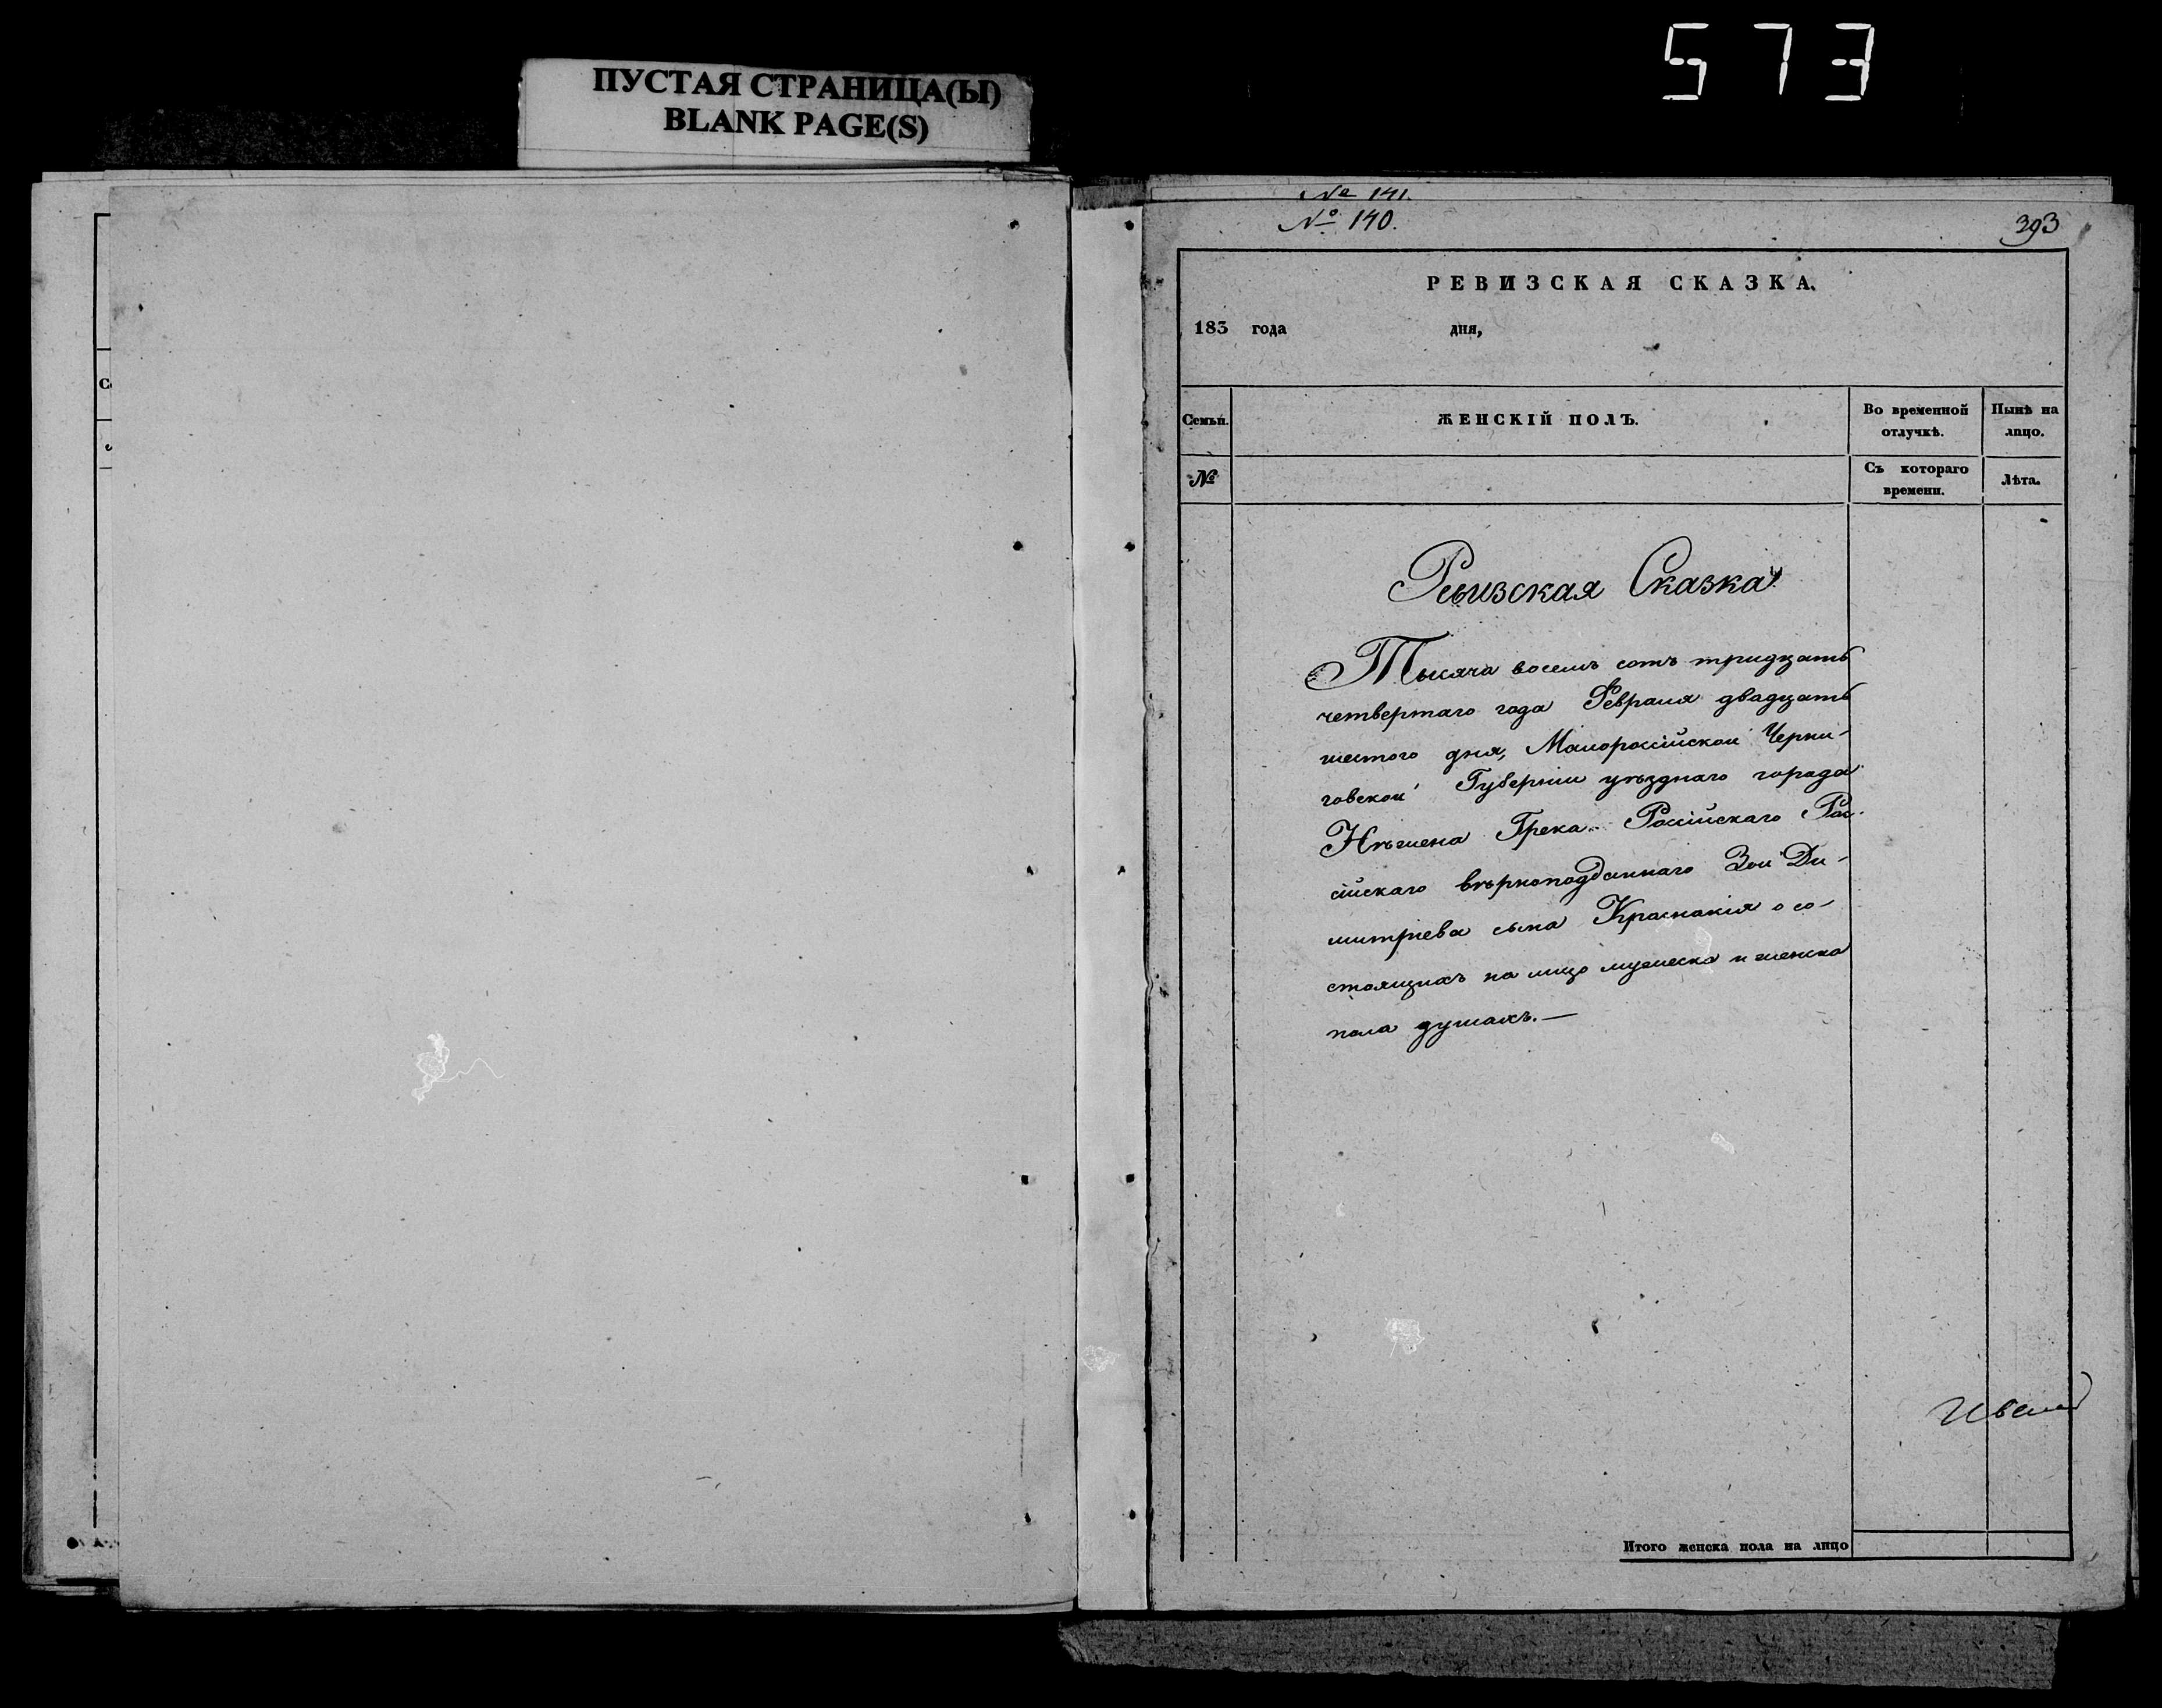 573
ПУСТАЯ СТРАНИЦА(Ы)
BLANK PAGE(S)
№ 141.
№ 140.
393
РЕВИЗСКАЯ СКАЗКА.
183 года дня,
Семьи. ЖЕНСКІЙ ПОЛЪ. Во временной отлучкѣ. Нынѣ на лицо.
№ Съ котораго времени. Лѣта.
Ревизская Сказка
Тысяча восемь сотъ тридцать
четвертаго года Февраля двадцать
шестого дня, Малороссійской Черни-
говской Губерніи уѣзднаго города
Нѣжена Грека Россійскаго Рос-
сійскаго вѣрноподданнаго Зои Ди-
митріева сына о со-
стоящихъ на лицо мужеска и женска
пола душахъ.—
Итого женска пола на лицо